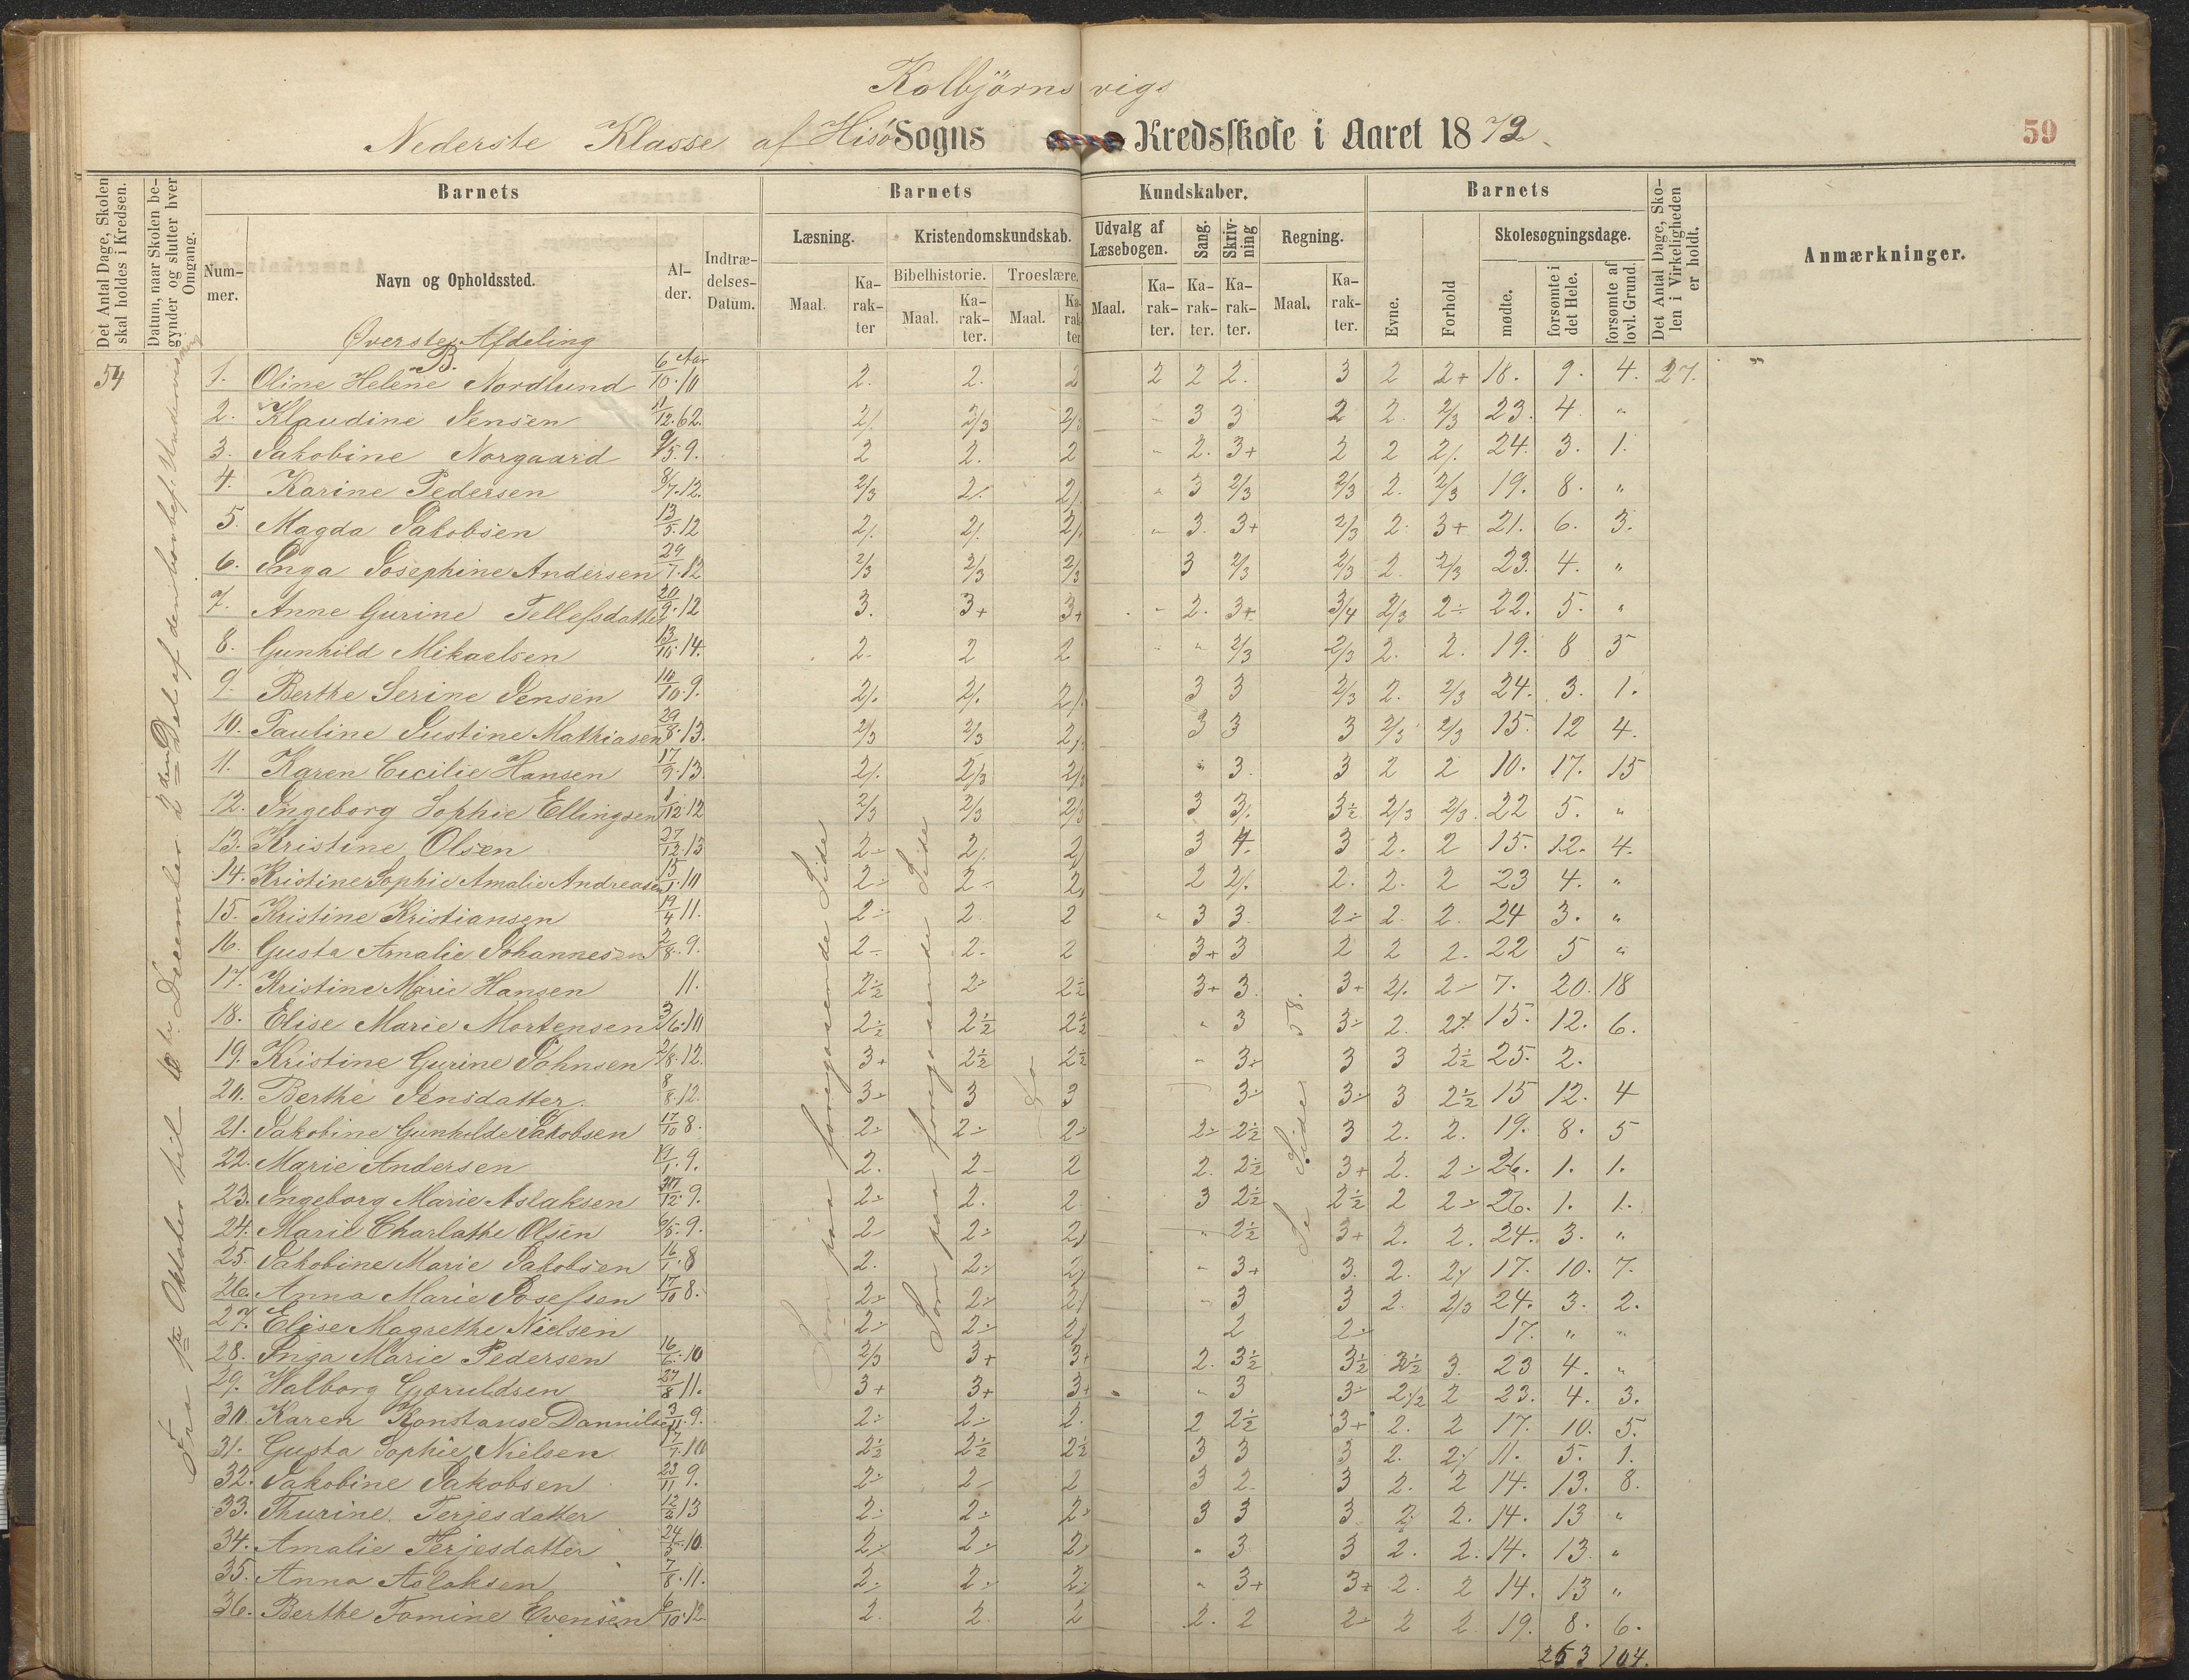 Kolbjörnsvigs
Nederste Klasse af Hisö Sogns Kredsskole i Aaret 1872.
59
Det Antal Dage, Skolen skal holdes i Kredsen.
Datum, naar Skolen begynder og slutter hver Omgang.
Barnets
Barnets Kundskaber.
Barnets
Det Antal Dage, Skolen i Virkeligheden er holdt.
Anmærkninger.
Nummer.
Navn og Opholdssted.
Alder.
Indtrædelses-Datum.
Læsning.
Kristendomskundskab.
Udvalg af Læsebogen.
Sang.
Skrivning
Regning.
Evne.
Forhold
Skolesøgningsdage.
Bibelhistorie.
Troeslære.
Maal.
Karakter
Maal.
Karakter.
Maal.
Karakter
Maal.
Karakter.
Karakter.
Karakter.
Maal.
Karakter.
mødte.
forsømte i det Hele.
forsømte af lovl. Grund.
Øverste Afdeling
B.
54
Fra 1ste Oktober til December 2den Del af den Undervisning
Som paa foregaaende Side
Som paa foregaaende Side
Do
Se Side 58.
1. Oline Helene Nordlund 6/10 10 Aar 2. 2. 2 2 2 2. 3 2 2+ 18. 9. 4. 27. "
2. Klaudine Jensen 11/12 62. 2/. 2/3 2/3 " 3 3 2 2. 2/3 23. 4. "
3. Jakobine Norgaard 9/5 9. 2 2. 2 " 2. 3+ 2 2 2/. 24. 3. 1.
4. Karine Pedersen 8/7 12. 2/3 2/. 2/. " 3 2/3 2/3 2. 2/3 19. 8. "
5. Magda Jakobsen 13/5 12 2/. 2/. 2/. " 3. 3+ 2/3 2. 3+ 21. 6. 3.
6. Inga Josephine Andersen 29/7 12 2/3 2/3 2/3 3 2/3 2/3 2. 2/3 23. 4. "
7. Anne Gurine Tellefsdatter 20/9 12 3. 3+ 3+ " 2. 3+ 3/4 2/3 2÷ 22. 5. "
8. Gunhild Mikaelsen 13/10 14. 2. 2 2 " 2/3 2/3 2. 2. 19. 8 5
9. Berthe Serine Jensen 10/10 9. 2/. 2/. 2/. 3 3 2/3 2. 2/3 24. 3. 1.
10. Pauline Justine Mathiasen 29/8 13. 2/3 2/3 2/. 3 3 3 2/3 2/3 15. 12 4.
11. Karen Cicilie Hansen 17/9 13. 2/. 2/3 2/3 " 3. 3 2 2 10. 17. 15
12. Ingeborg Sophie Ellingsen 1/12 12 2/3 2/3 2/3 3 3/. 3½ 2/3 2/3. 22 5. "
13. Kristine Olsen 27/12 13 2÷ 2/. 2/ 3 4. 3 2. 2 15. 12. 4.
14. Kristine Sophie Amalie Andreasen 15/1 10 2÷ 2÷ 2/ 2 2/. 2. 2. 2 23 4. "
15. Kristine Kristiansen 19/4 11. 2÷ 2. 2 " 3 3. 2÷ 2. 2. 24 3. "
16. Gusta Amalie Johannesen 2/8 9. 2÷ 2. 2 3+ 3 2 2 2. 22 5 "
17. Kristine Marie Hansen 11. 2½ 2÷ 2½ 3+ 3. 3+ 2/. 2÷ 7. 20. 18
18. Elise Marie Mortensen 3/6 10 2½ 2½ 2½ " 3 3÷ 2. 2/. 15. 12. 6.
19. Kristine Gurine Johnsen 2/8 12. 3+ 2½ 2½ " 3÷ 3 3 2½ 25. 2.
20. Berthe Jensdatter. 8/8 12. 3÷ 3 3 3÷ 3÷ 3 2½ 15 12. 4
21. Jakobine Gunhilde Jakobsen 17/10 8. 2÷ 2÷ 2÷ 2÷ 2½ 3 2. 2. 19. 8. 5
22. Marie Andersen 19/1 9. 2. 2÷ 2 2. 2½ 3+ 2. 2÷ 26. 1. 1.
23. Ingeborg Marie Aslaksen 9. 2÷ 2. 2. 3 2½ 2½ 2 2÷ 26. 1. 1.
24. Marie Charlathe Olsen 6/5 9. 2÷ 2÷ 2/ " 2½ 3+ 2. 2. 24. 3. "
25. Jakobine Marie Jakobsen 16/1 8 2. 2÷ 2/ " 3+ 3. 2. 2/ 17. 10. 7.
26. Anna Marie Josefsen 17/10 8. 2÷ 2÷ 2/ " 3 3 2. 2/3 24. 3. 2.
27. Elise Magrethe Nielsen 2÷ 2÷ 2/ 2 2÷ 17. " "
28. Inga Marie Pedersen 16/6 10 2/3 3+ 3+ 2. 3½ 3½ 2½ 3. 23 4. "
29. Walborg Gjæruldsen 27/8 11. 3+ 3+ 3+ " 3 3÷ 2½ 2 23. 4. 3.
30. Karen Konstanse Dannilsen 3/11 9. 2÷ 2÷ 2. 2 2½ 3+ 2. 2 17. 10. 5.
31. Gusta Sophie Nielsen 17/7 10 2½ 2½ 2½ 3 3 3 2. 2/ 11. 5. 1.
32. Jakobine Jakobsen 23/11 9. 2÷ 2÷ 2 3 2. 3 2. 2 14. 13. 8.
33. Thurine Terjesdatter 12/2 13 2÷ 2÷ 2÷ 3 3 3 2. 2. 14. 13 "
34. Amalie Terjesdatter 24/5 10. 2÷ 2÷ 2/ " 3. 3 2. 2. 14. 13. "
35. Anna Aslaksen 7/8 11. 2÷ 2÷ 2÷ " 3+ 3+ 2. 2 14. 13 "
36. Berthe Tomine Evensen 6/10 12 2. 2. 2 2. 2 2÷ 2 2. 19. 8. 6.
253 104.